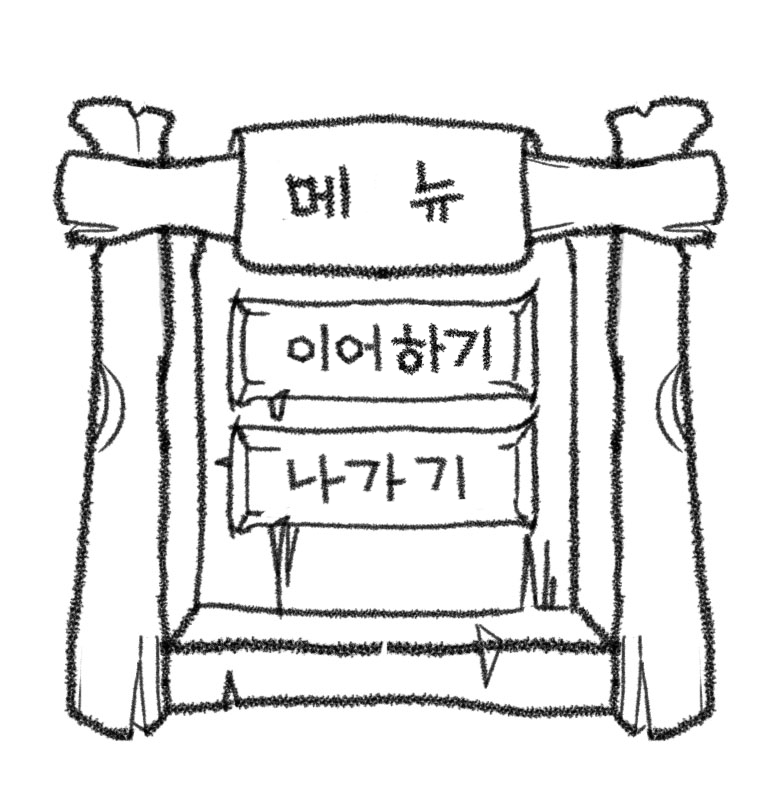 메 뉴
이어하기
나가기